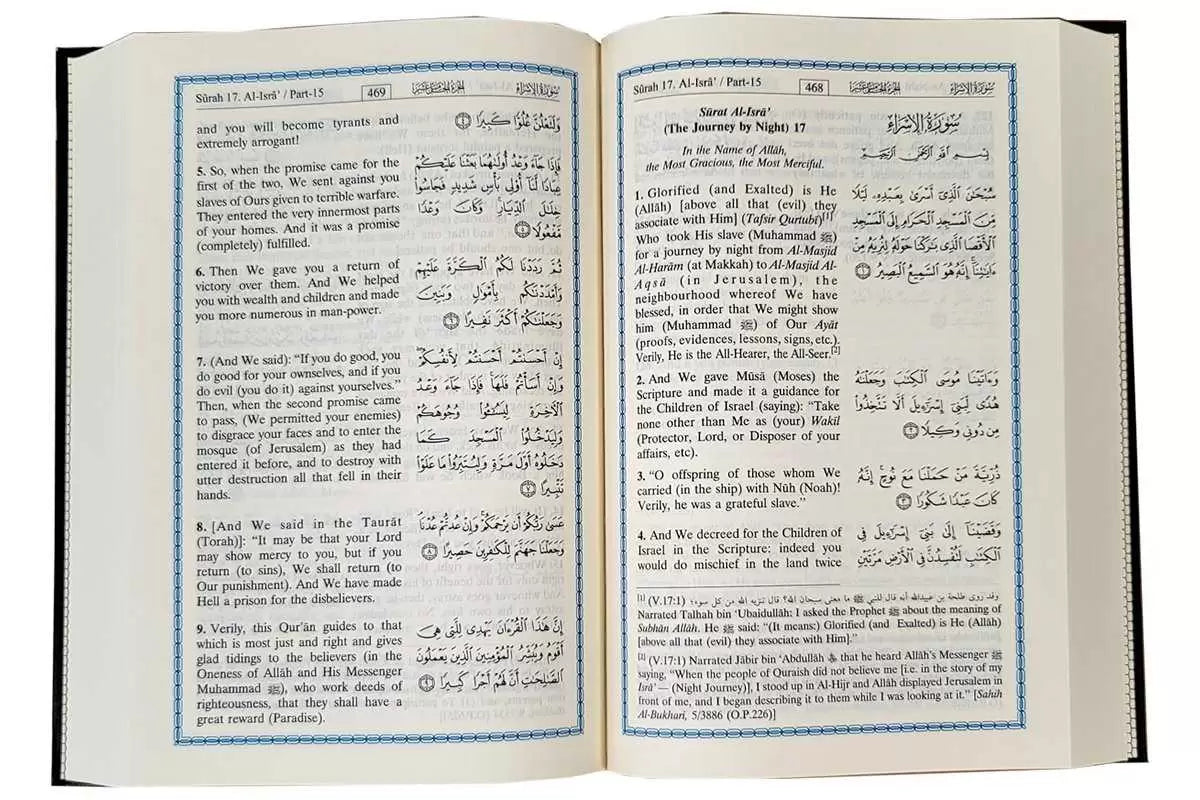 Sûrah 17. Al-Isrâ’ / Part-15 468 الجزء الخامس عشر سورة الإسراء
Sûrat Al-Isrâ’
(The Journey by Night) 17
In the Name of Allâh,
the Most Gracious, the Most Merciful.
1. Glorified (and Exalted) is He
(Allâh) [above all that (evil) they
associate with Him] (Tafsir Qurtubî)[1]
Who took His slave (Muhammad ﷺ)
for a journey by night from Al-Masjid
Al-Harâm (at Makkah) to Al-Masjid Al-
Aqsâ (in Jerusalem), the
neighbourhood whereof We have
blessed, in order that We might show
him (Muhammad ﷺ) of Our Ayât
(proofs, evidences, lessons, signs, etc.).
Verily, He is the All-Hearer, the All-Seer.[2]
2. And We gave Mûsâ (Moses) the
Scripture and made it a guidance for
the Children of Israel (saying): “Take
none other than Me as (your) Wakîl
(Protector, Lord, or Disposer of your
affairs, etc).
3. “O offspring of those whom We
carried (in the ship) with Nûh (Noah)!
Verily, he was a grateful slave.”
4. And We decreed for the Children of
Israel in the Scripture: indeed you
would do mischief in the land twice
سُورَةُ الإِسْرَاءِ
بِسْمِ اللَّهِ الرَّحْمَنِ الرَّحِيمِ
سُبْحَٰنَ ٱلَّذِىٓ أَسْرَىٰ بِعَبْدِهِۦ لَيْلًا
مِّنَ ٱلْمَسْجِدِ ٱلْحَرَامِ إِلَى ٱلْمَسْجِدِ
ٱلْأَقْصَا ٱلَّذِى بَٰرَكْنَا حَوْلَهُۥ لِنُرِيَهُۥ مِنْ
ءَايَٰتِنَآ إِنَّهُۥ هُوَ ٱلسَّمِيعُ ٱلْبَصِيرُ ١
وَءَاتَيْنَا مُوسَى ٱلْكِتَٰبَ وَجَعَلْنَٰهُ
هُدًى لِّبَنِىٓ إِسْرَٰٓءِيلَ أَلَّا تَتَّخِذُوا۟
مِن دُونِى وَكِيلًا ٢
ذُرِّيَّةَ مَنْ حَمَلْنَا مَعَ نُوحٍ إِنَّهُۥ
كَانَ عَبْدًا شَكُورًا ٣
وَقَضَيْنَآ إِلَىٰ بَنِىٓ إِسْرَٰٓءِيلَ فِى
ٱلْكِتَٰبِ لَتُفْسِدُنَّ فِى ٱلْأَرْضِ مَرَّتَيْنِ
[1] (V.17:1) وقد روى طلحة بن عبيدالله أنه قال للنبي ﷺ ما معنى سبحان الله؟ قال تنزيه الله من كل سوء؛
Narrated Talhah bin ‘Ubaidullâh: I asked the Prophet ﷺ about the meaning of
Subhân Allâh. He ﷺ said: “(It means:) Glorified (and Exalted) is He (Allâh)
[above all that (evil) they associate with Him].”
[2] (V.17:1) Narrated Jâbir bin ‘Abdullâh that he heard Allâh’s Messenger ﷺ
saying, “When the people of Quraish did not believe me [i.e. in the story of my
Isrâ’ — (Night Journey)], I stood up in Al-Hijr and Allâh displayed Jerusalem in
front of me, and I began describing it to them while I was looking at it.” [Sahih
Al-Bukhari, 5/3886 (O.P.226)]
Sûrah 17. Al-Isrâ’ / Part-15 469 الجزء الخامس عشر سورة الإسراء
and you will become tyrants and
extremely arrogant!
5. So, when the promise came for the
first of the two, We sent against you
slaves of Ours given to terrible warfare.
They entered the very innermost parts
of your homes. And it was a promise
(completely) fulfilled.
6. Then We gave you a return of
victory over them. And We helped
you with wealth and children and made
you more numerous in man-power.
7. (And We said): “If you do good, you
do good for your ownselves, and if you
do evil (you do it) against yourselves.”
Then, when the second promise came
to pass, (We permitted your enemies)
to disgrace your faces and to enter the
mosque (of Jerusalem) as they had
entered it before, and to destroy with
utter destruction all that fell in their
hands.
8. [And We said in the Taurât
(Torah)]: “It may be that your Lord
may show mercy to you, but if you
return (to sins), We shall return (to
Our punishment). And We have made
Hell a prison for the disbelievers.
9. Verily, this Qur’ân guides to that
which is most just and right and gives
glad tidings to the believers (in the
Oneness of Allâh and His Messenger
Muhammad ﷺ), who work deeds of
righteousness, that they shall have a
great reward (Paradise).
وَلَتَعْلُنَّ عُلُوًّا كَبِيرًا ٤
فَإِذَا جَآءَ وَعْدُ أُولَىٰهُمَا بَعَثْنَا عَلَيْكُمْ
عِبَادًا لَّنَآ أُو۟لِى بَأْسٍ شَدِيدٍ فَجَاسُوا۟
خِلَٰلَ ٱلدِّيَارِ وَكَانَ وَعْدًا
مَّفْعُولًا ٥
ثُمَّ رَدَدْنَا لَكُمُ ٱلْكَرَّةَ عَلَيْهِمْ
وَأَمْدَدْنَٰكُم بِأَمْوَٰلٍ وَبَنِينَ
وَجَعَلْنَٰكُمْ أَكْثَرَ نَفِيرًا ٦
إِنْ أَحْسَنتُمْ أَحْسَنتُمْ لِأَنفُسِكُمْ
وَإِنْ أَسَأْتُمْ فَلَهَا فَإِذَا جَآءَ وَعْدُ
ٱلْءَاخِرَةِ لِيَسُۥٓـُٔوا۟ وُجُوهَكُمْ
وَلِيَدْخُلُوا۟ ٱلْمَسْجِدَ كَمَا
دَخَلُوهُ أَوَّلَ مَرَّةٍ وَلِيُتَبِّرُوا۟ مَا عَلَوْا۟
تَتْبِيرًا ٧
عَسَىٰ رَبُّكُمْ أَن يَرْحَمَكُمْ وَإِنْ عُدتُّمْ عُدْنَا
وَجَعَلْنَا جَهَنَّمَ لِلْكَٰفِرِينَ حَصِيرًا ٨
إِنَّ هَٰذَا ٱلْقُرْءَانَ يَهْدِى لِلَّتِى هِىَ
أَقْوَمُ وَيُبَشِّرُ ٱلْمُؤْمِنِينَ ٱلَّذِينَ يَعْمَلُونَ
ٱلصَّٰلِحَٰتِ أَنَّ لَهُمْ أَجْرًا كَبِيرًا ٩